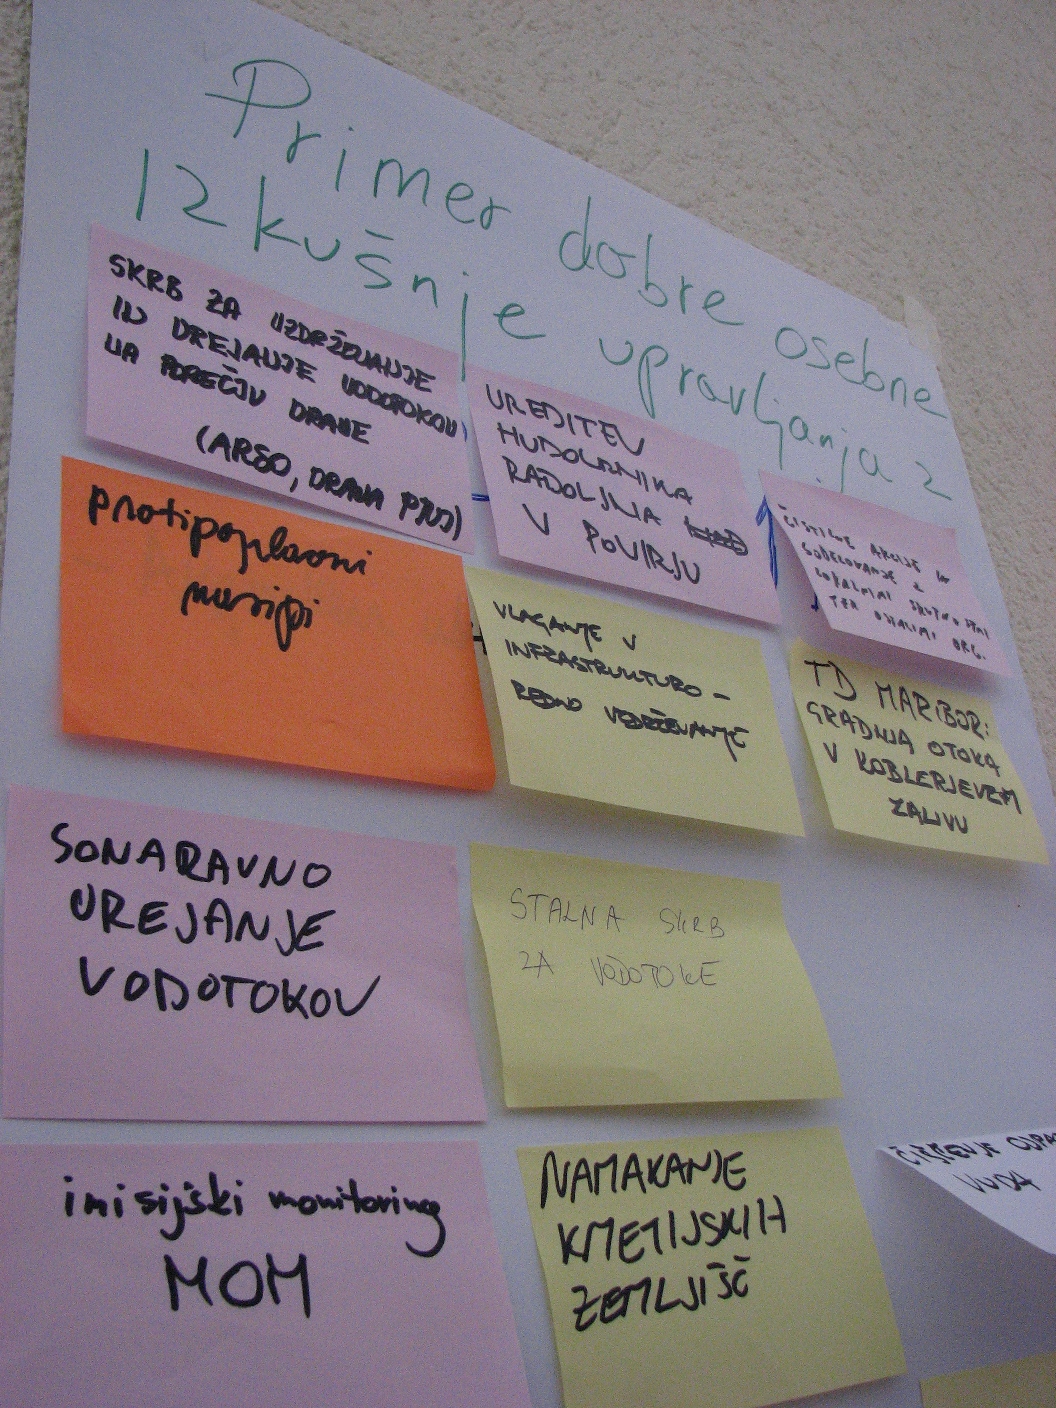 Primer dobre osebne
Izkušnje upravljanja z
SKRB ZA VZDRŽEVANJE
IN UREJANJE VODOTOKOV
NA POREČJU DRAVE
(ARSO, DRAVA PTUJ)
UREDITEV
HUDOURNIKA
RADOLJNA
V POVIRJU
ČISTILNE AKCIJE IN
SODELOVANJE Z
LOKALNIMI SKUPNOSTMI
TER OSTALIMI ORG.
protipoplavni
nasipi
VLAGANJE V
INFRASTRUKTURO -
REDNO VZDRŽEVANJE
TD MARIBOR:
GRADNJA OTOKA
V KOBLERJEVEM
ZALIVU
SONARAVNO
UREJANJE
VODOTOKOV
STALNA SKRB
ZA VODOTOKE
imisijski monitoring
MOM
NAMAKANJE
KMETIJSKIH
ZEMLJIŠČ
ČIŠČENJE